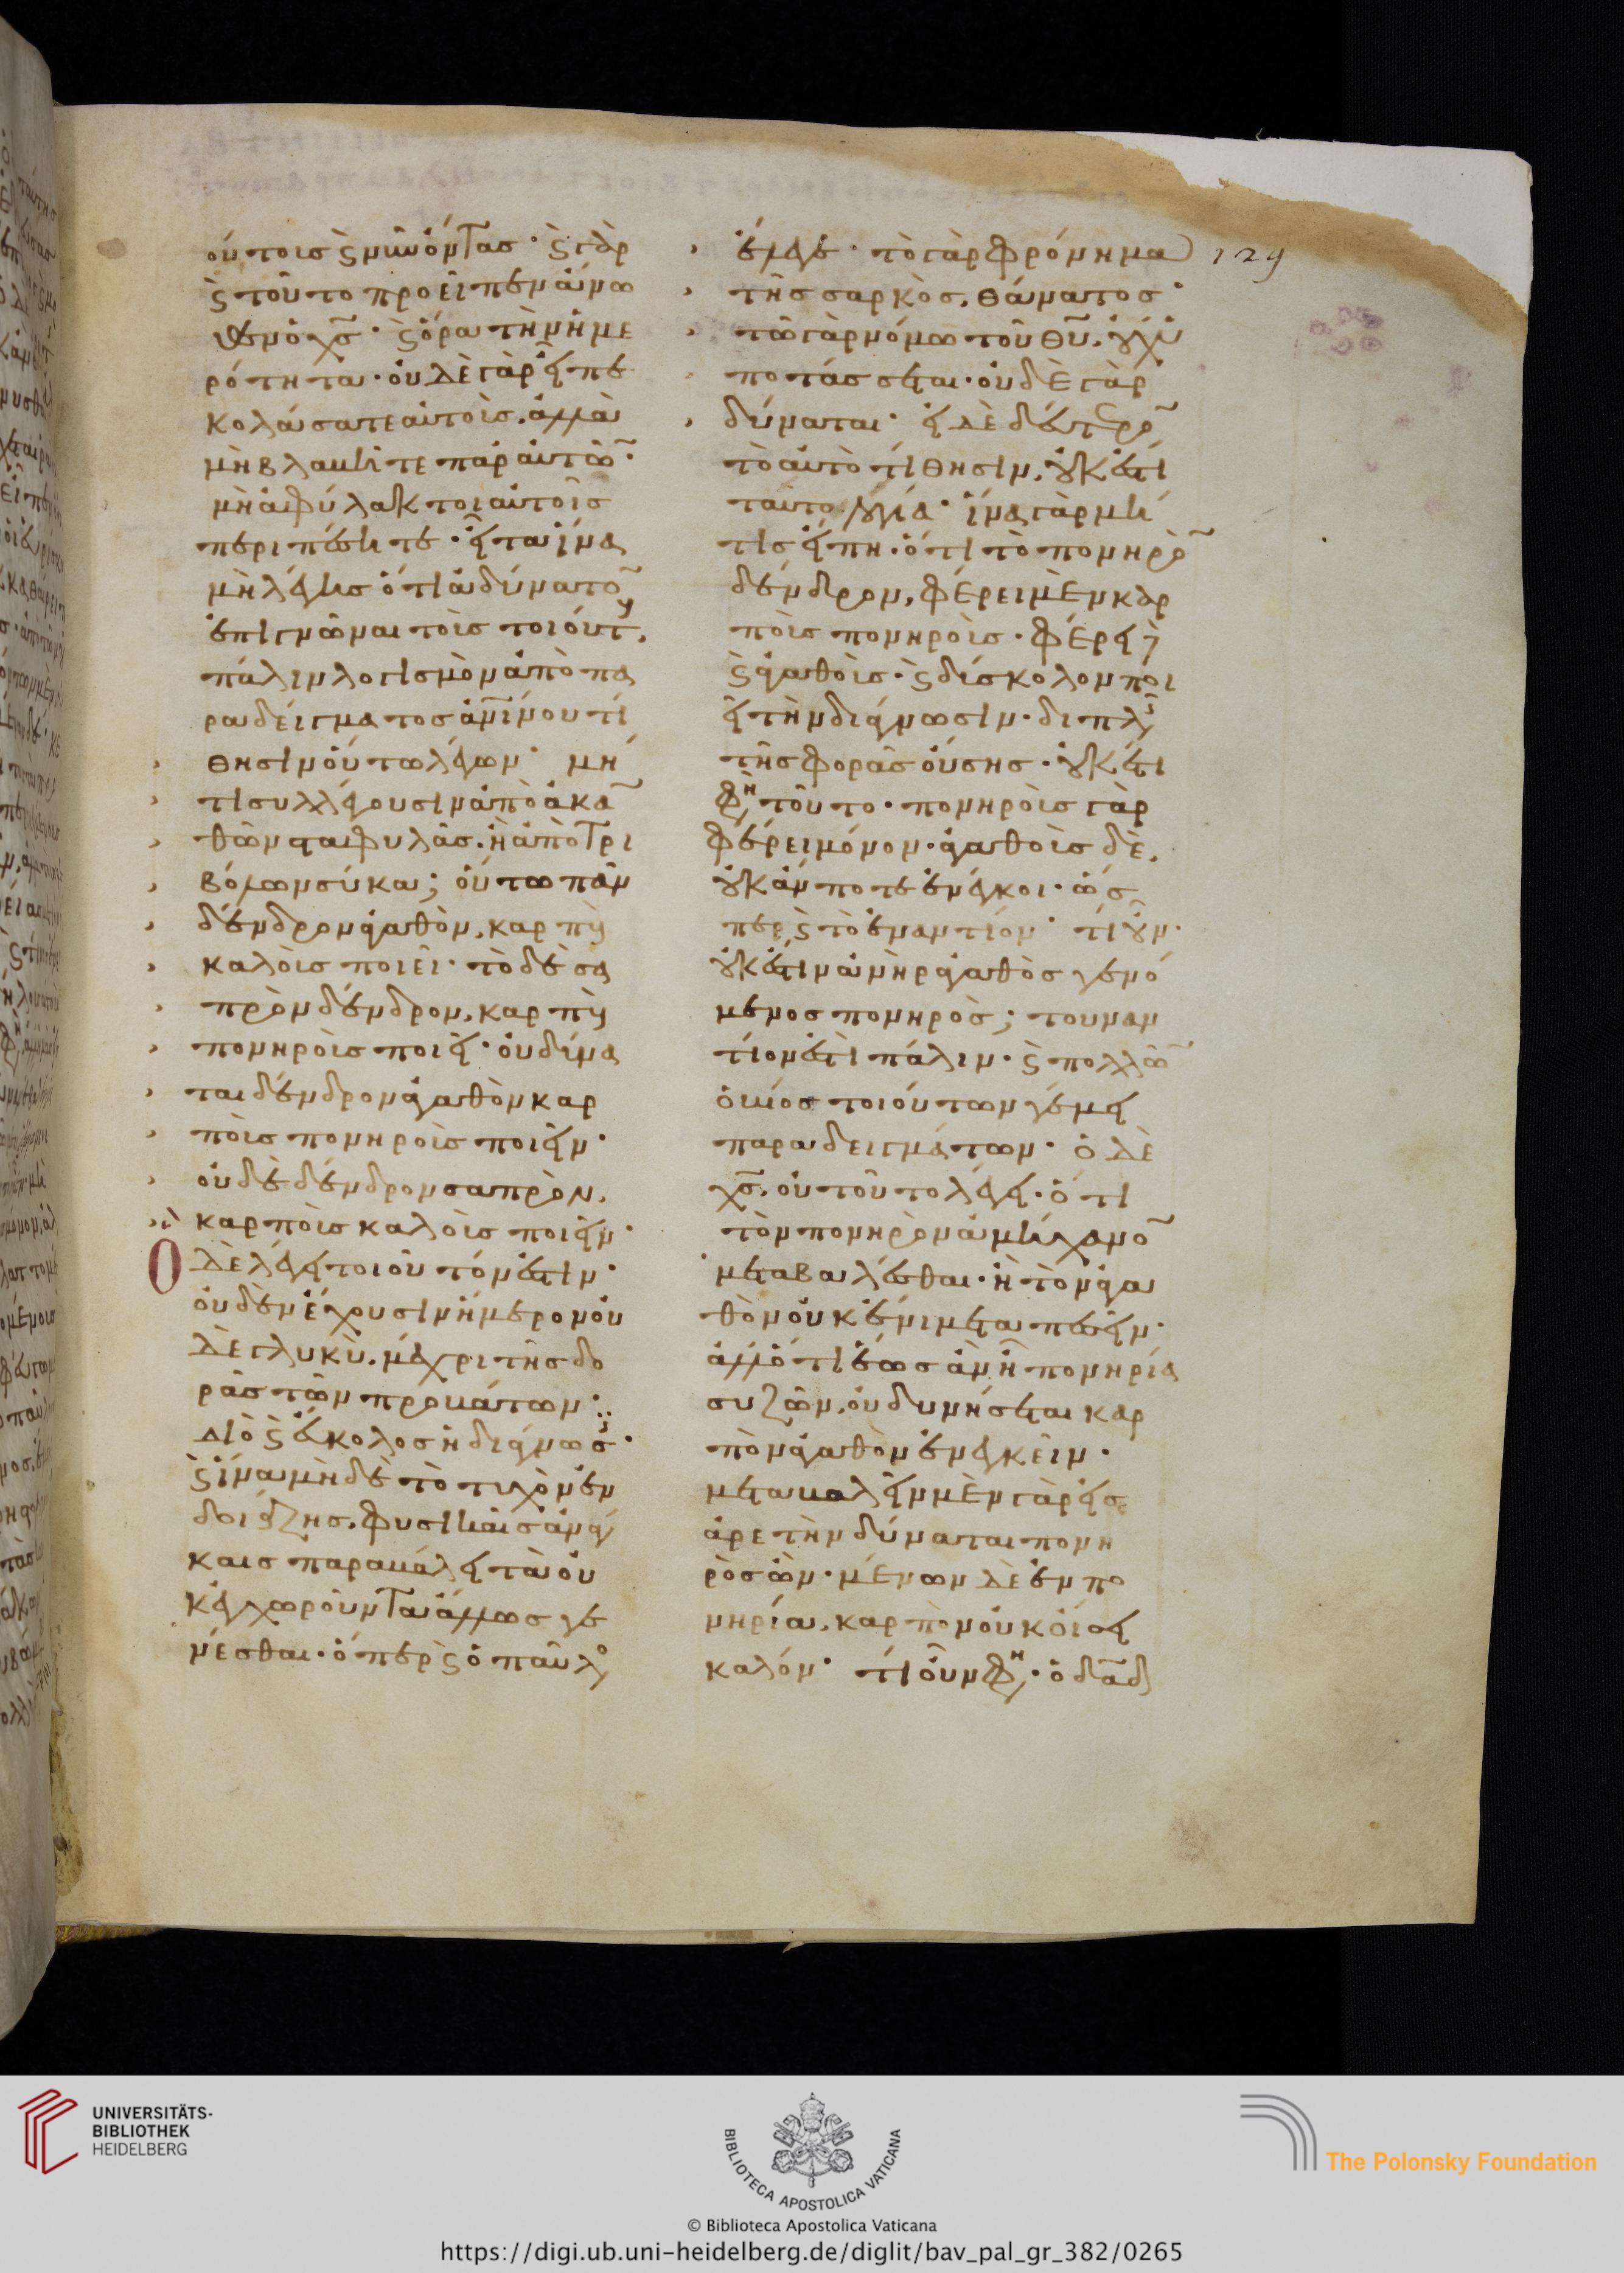 ούτους ϛ νῦν ὄντας · ϛ γὰρ
ϛ τοῦτο προεῖπεν ἄνω
θεν ὁ χς̅ · ϛ ὅρα τὴν ἡμε
ρότητα · οὐδὲ γὰρ εἶπε
κολάσατε αὐτοὺς, ἀλλὰ
μὴ βλαβῆτε παρ αὐτῶ̅ ·
μὴ ἀφύλακτοι αὐτοῖς
περιπέσητε · εἶτα ἵνα
μὴ λέγης ὅτι ἀδύνατο̅
ἐπιγνῶναι τοὺς τοιούτ̅ους,
πάλιν λογισμὸν ἀπὸ πα
ραδείγματος ἀν̅ίνου τί
θησιν οὕτω λέγων · μή
τι συλλέγουσιν ἀπὸ ἀκα̅
θῶν σταφυλὰς · ἢ ἀπὸ τρι
βόλων σύκα ; οὕτω πᾶν
δένδρον ἀγαθὸν, καρποὺς
καλοὺς ποιεῖ · τὸ δὲ σα
πρὸν δένδρον, καρποὺς
πονηροὺς ποιεῖ · οὐ δύνα
ται δένδρον ἀγαθὸν καρ
ποὺς πονηροὺς ποιεῖν ·
οὐδὲ δένδρον σαπρὸν,
καρποὺς καλοὺς ποιεῖν ·
Ὃ δὲ λέγει τοιοῦτόν ἐστιν ·
οὐδὲν ἔχουσιν ἥμερον οὐ
δὲ γλυκὺ. μέχρι τῆς δο
ρᾶς τῶν προβάτων ·
διὸ ϛ εὔκολος ἡ διάγνωσις ·
ϛ ἵνα μὴ δὲ τὸ τυχὸν ἐν
δοιάζης. φυσικαῖς ἀνάγ
καις παραβάλει τὰ οὐ
κ ἐγχωροῦντα ἄλλως γε
νέσθαι · ὅπερ ϛ ὁ παῦλο
ἔλεγε · τὸ γὰρ φρόνημα 129
τῆς σαρκὸς, θάνατος ·
τῶ γὰρ νόμω τοῦ θυ̅, οὐχ ὑ
ποτάσσεται · οὐδὲ γὰρ
δύναται · εἰ δὲ δεύτερο̅
τὸ αὐτὸ τίθησιν, οὐκ ἔστι
ταυτολογία · ἵνα γὰρ μή
τις εἴπη · ὅτι τὸ πονηρὸ̅
δένδρον, φέρει μὲν καρ
ποὺς πονηροὺς · φέρει δὲ
ϛ ἀγαθοὺς · ϛ δύσκολον ποι
εῖ τὴν διάγνωσιν · διπλῆς
τῆς φορᾶς οὔσης · οὐκ ἔστι
φησὶ τοῦτο · πονηροὺς γὰρ
φέρει μόνον · ἀγαθοὺς δὲ,
οὐκ ἄν ποτε ἐνέγκοι · ὥσ
περ ϛ τὸ ἐναντίον · τί οὖν ·
οὐκ ἔστιν ἀνὴρ ἀγαθὸς γενό
μενος πονηρὸς ; τουναν
τίον ἔστι πάλιν · ϛ πολλῶ̅
ὁ βίος τοιούτων γέμει
παραδειγμάτων · ὁ δὲ
χς̅, οὐ τοῦτο λέγει · ὅτι
τὸν πονηρὸν ἀμήχανο̅
μεταβαλέσθαι · ἢ τὸν ἀγα
θὸν οὐκ ἔνι μεταπεσεῖν ·
ἀλλ ὅτι ἕως ἂν ἦ πονηρία
συζῶν, οὐ δυνήσεται καρ
πὸν ἀγαθὸν ἐνεγκεῖν ·
μεταβαλεῖν μὲν γὰρ εἰς
ἀρετὴν δύναται πονη
ρὸς ὢν · μένων δὲ ἐν πο
νηρία, καρπὸν οὐκ οἴσει
καλόν · τί οὖν φησὶ · ὁ δα̅δ

UNIVERSITÄTS-
BIBLIOTHEK
HEIDELBERG
BIBLIOTECA APOSTOLICA VATICANA
The Polonsky Foundation
© Biblioteca Apostolica Vaticana
https://digi.ub.uni-heidelberg.de/diglit/bav_pal_gr_382/0265